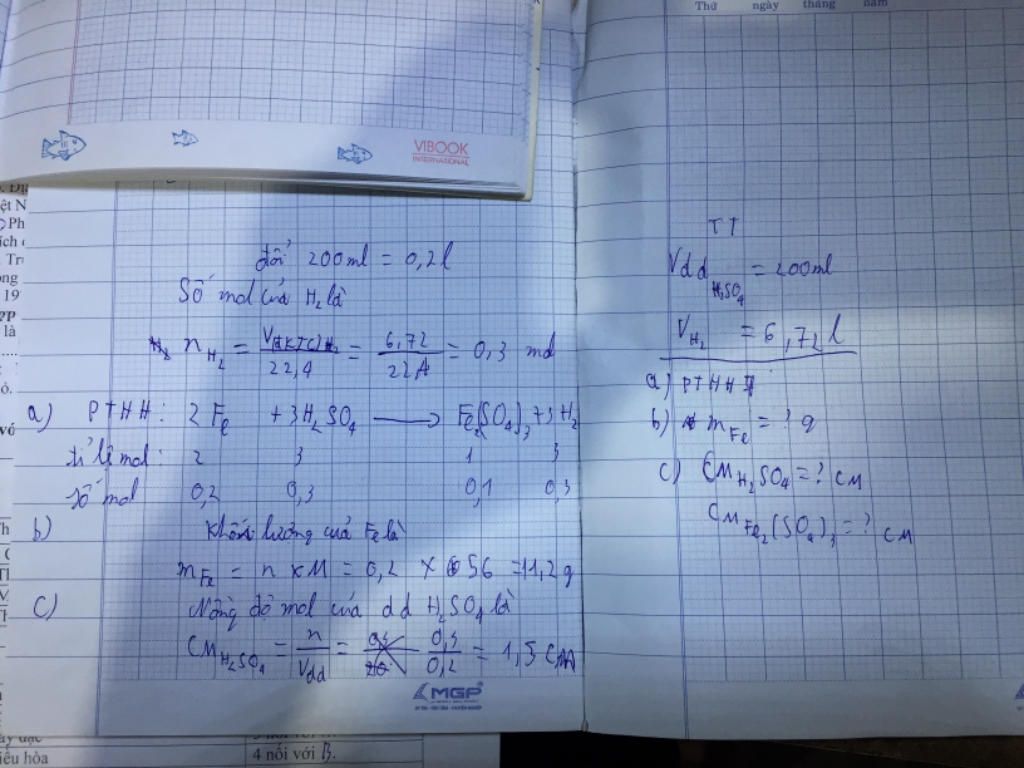 Thứ ngày tháng năm
VIBOOK
INTERNATIONAL
đổi 200ml = 0,2l
Số mol của H2 là
nH2 = V(ĐKTC)H2 / 22,4 = 6,72 / 22,4 = 0,3 mol
a) PTHH: 2Fe + 3H2SO4 → Fe2(SO4)3 + 3H2
tỉ lệ mol: 2 3 1 3
số mol 0,2 0,3 0,1 0,3
b) Khối lượng của Fe là
mFe = n x M = 0,2 x 56 = 11,2g
c) Nồng độ mol của dd H2SO4 là
CMH2SO4 = n / Vdd = 0,3 / 0,2 = 1,5 CM
MGP
TT
VddH2SO4 = 200ml
VH2 = 6,72l
a) PTHH
b) mFe = ? g
c) CMH2SO4 = ? CM
CMFe2(SO4)3 = ? CM
iêu hòa
4 nối với B.